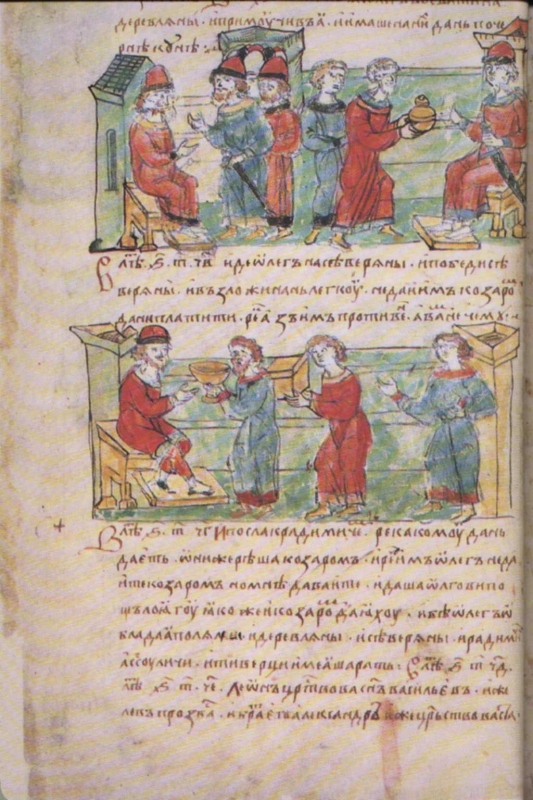 деревлѧны · и примоучивъ ѧ · и имаше на ни дань по че
рнѣ кунѣ :
В лѣт҃ · ѕ҃ · т҃ · ч҃в · иде ѡлегъ на сѣверѧны · и победи сѣ
верѧны · и възложи на нь легкоу · не дал имъ козаро
дани платити · рек҃ а зъ имъ противен · а вам не чему ·
В лѣт҃ · ѕ҃ · т҃ · ч҃г И посла к радимиче · река комоу дань
даеть · ѡни же рѣша козаромъ · и реч҃ имъ ѡлегъ не да
ите козаромъ но мнѣ даваите · и даша ѡлгови по
щълѧгоу ꙗко же и козаро даꙗхоу · и бѣ ѡлегъ ѡ
бладаꙗ полѧны и деревлѧны · и сѣверѧны · и радими
а с соуличи · и тиверци имеꙗше рать : В лѣт҃ · ѕ҃ · т҃ · ч҃д
лѣт҃ · ѕ҃ · т҃ · ч҃е · Леѡнъ цр҃ствова сн҃ъ васильевъ · иже
левъ прозва · и бра҃т его александръ иже цр҃ьствова